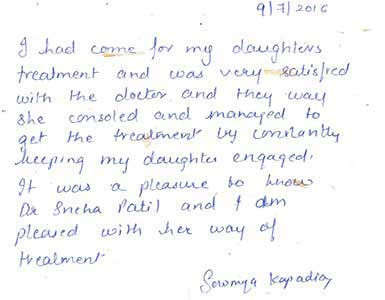 9/7/2016
I had come for my daughters
treatment and was very satisfied
with the doctor and they way
she consoled and managed to
get the treatment by constantly
keeping my daughter engaged.
It was a pleasure to know
Dr Sneha Patil and I am
pleased with her way of
treatment
Sowmya Kapadia